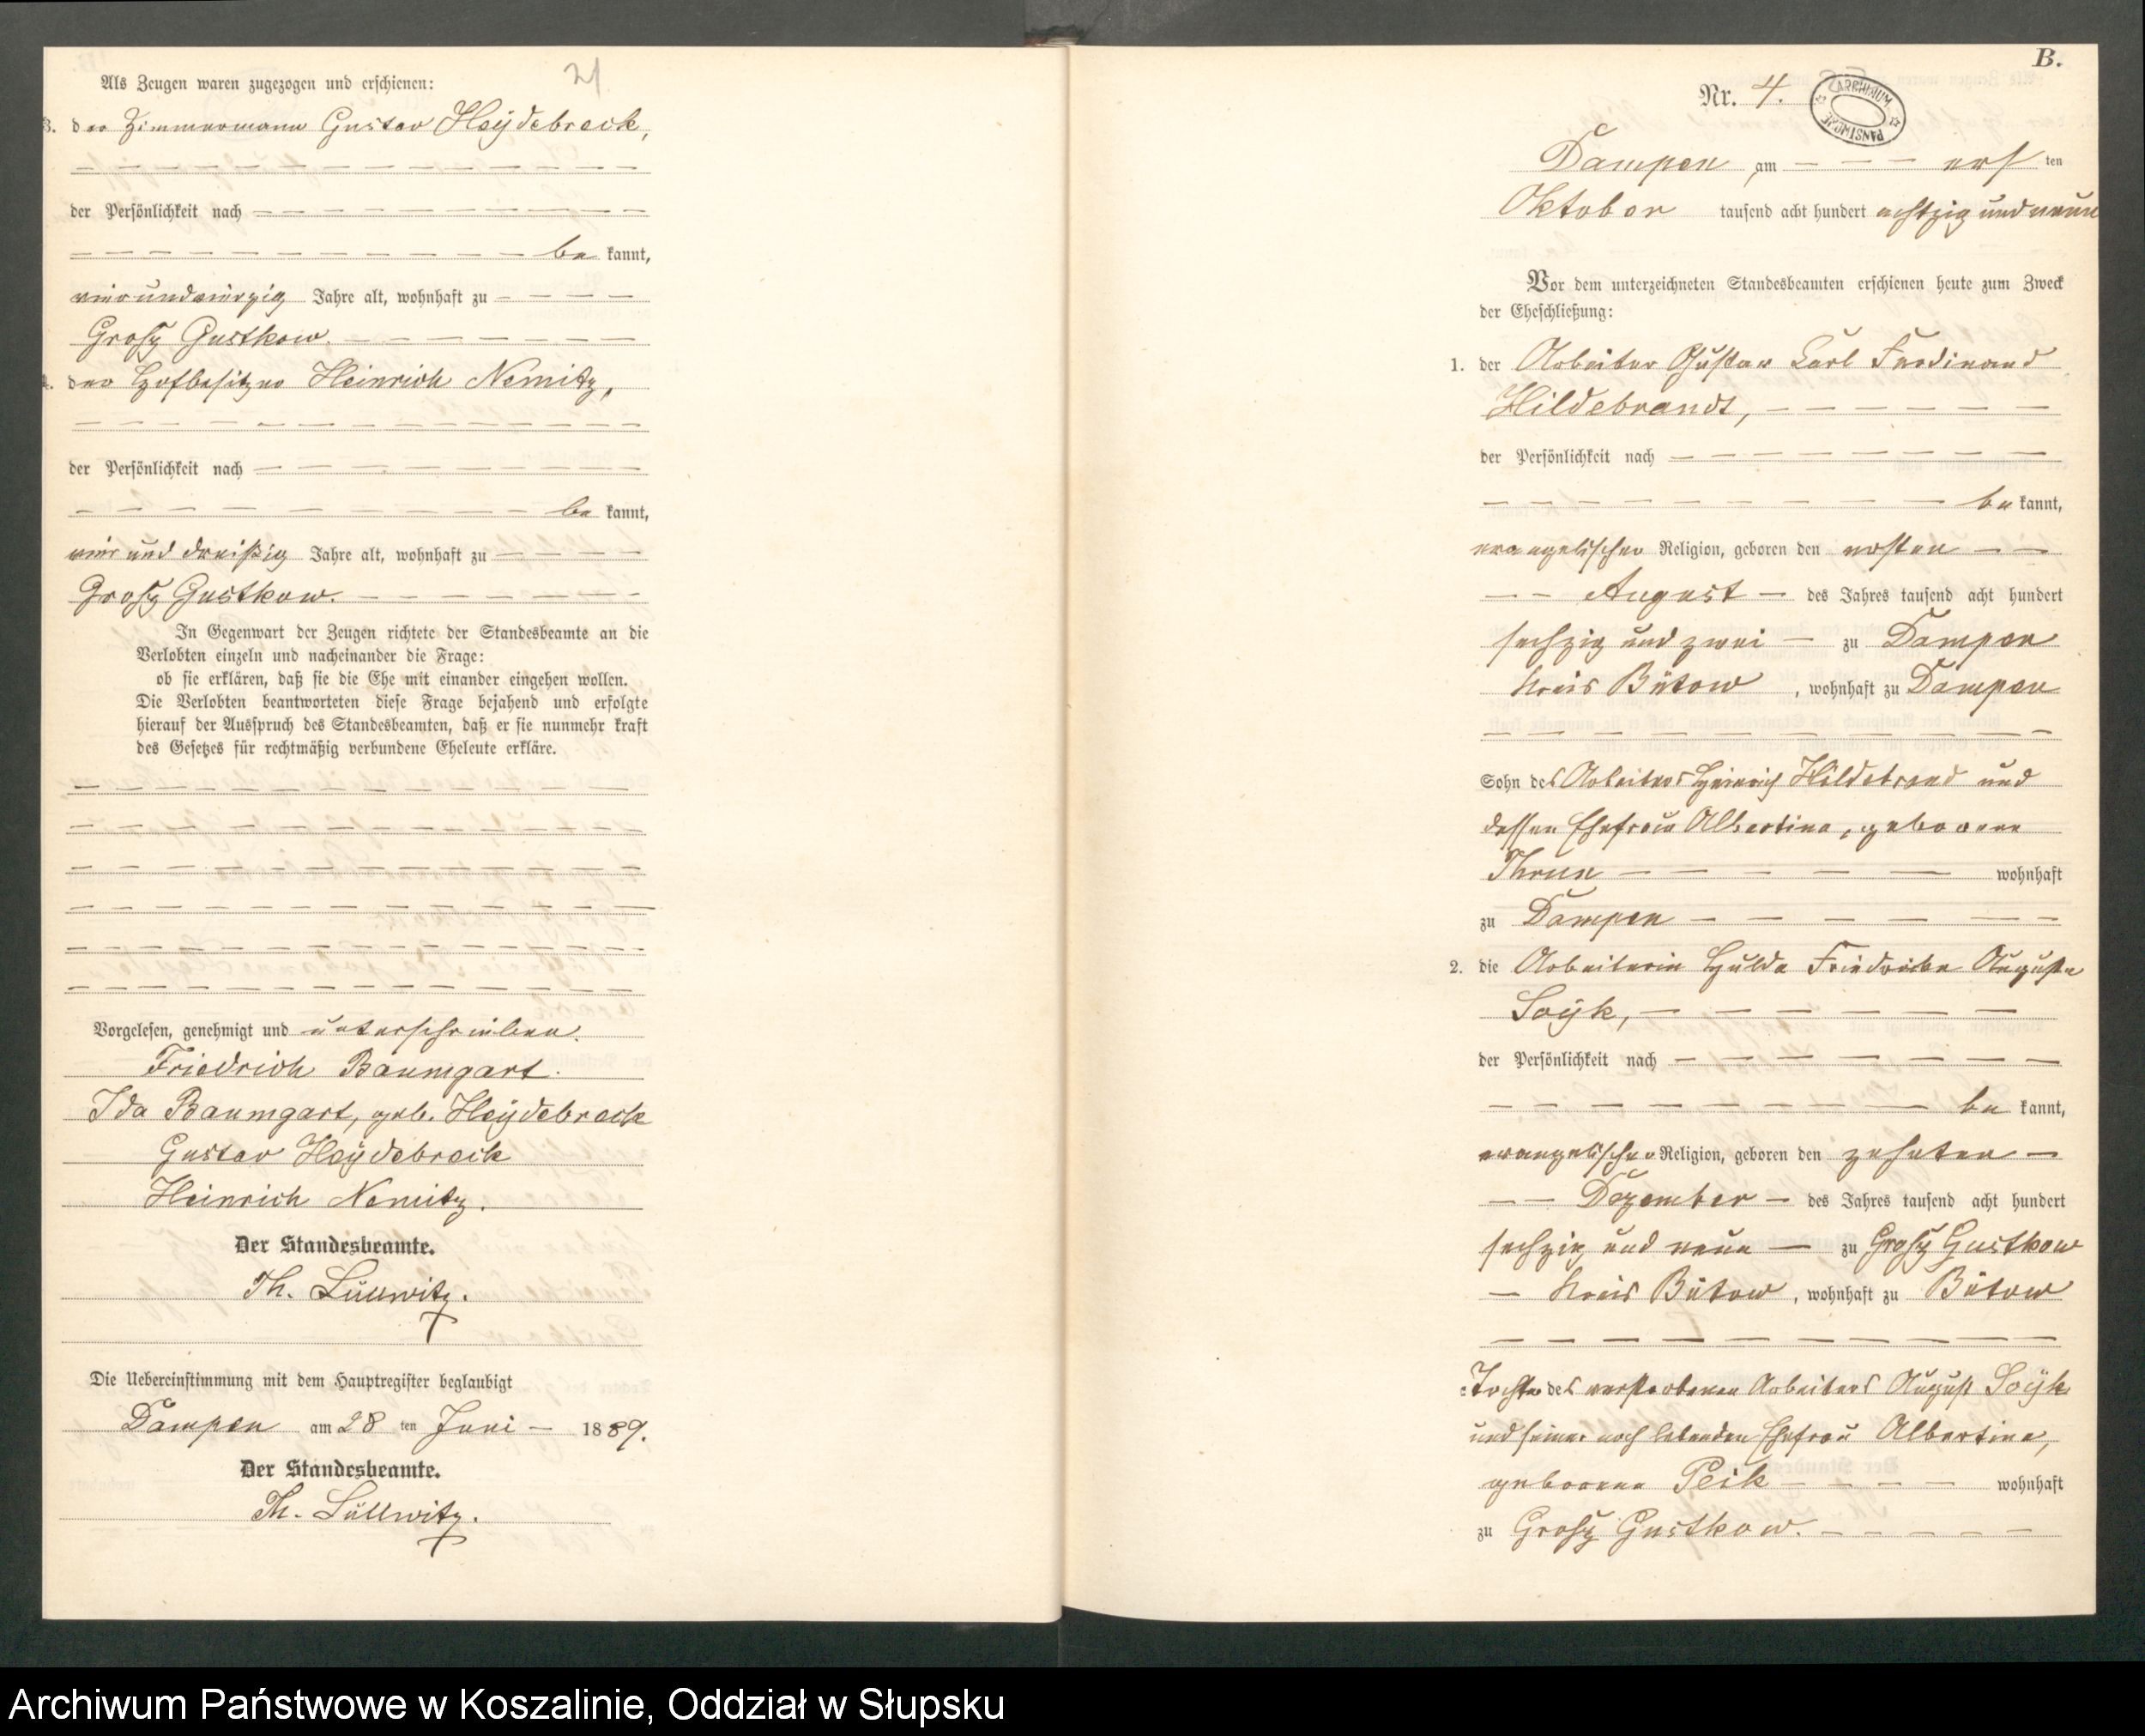 Als Zeugen waren zugezogen und erschienen:
21
3. der Zimmermann Gustav Heÿdebreck,
der Persönlichkeit nach
be kannt,
vier und vierzig Jahre alt, wohnhaft zu
Groß Gustkow.
4. der Hofbesitzer Heinrich Nemitz,
der Persönlichkeit nach
be kannt,
vier und dreißig Jahre alt, wohnhaft zu
Groß Gustkow.
In Gegenwart der Zeugen richtete der Standesbeamte an die
Verlobten einzeln und nacheinander die Frage:
ob sie erklären, daß sie die Ehe mit einander eingehen wollen.
Die Verlobten beantworteten diese Frage bejahend und erfolgte
hierauf der Ausspruch des Standesbeamten, daß er sie nunmehr kraft
des Gesetzes für rechtmäßig verbundene Eheleute erkläre.
Vorgelesen, genehmigt und unterschrieben.
Friedrich Baumgart.
Ida Baumgart, geb. Heÿdebreck
Gustav Heÿdebreck
Heinrich Nemitz.
Der Standesbeamte.
Th. Lüllwitz.
Die Uebereinstimmung mit dem Hauptregister beglaubigt
Dampen am 28 ten Juni 1889.
Der Standesbeamte.
Th. Lüllwitz.
B.
Nr. 4.
ARCHIWUM PAŃSTWOWE
Dampen am erf ten
Oktober tausend acht hundert achtzig und neun
Vor dem unterzeichneten Standesbeamten erschienen heute zum Zweck
der Eheschließung:
1. der Arbeiter Gustav Carl Ferdinand
Hildebrandt,
der Persönlichkeit nach
be kannt,
evangelischer Religion, geboren den ersten
August des Jahres tausend acht hundert
sechzig und zwei zu Dampen
Kreis Bütow, wohnhaft zu Dampen
Sohn des Arbeiters Heinrich Hildebrand und
dessen Ehefrau Albertine, geborene
Thrun wohnhaft
zu Dampen
2. die Arbeiterin Hulda Friedrike Auguste
Soÿk,
der Persönlichkeit nach
be kannt,
evangelischer Religion, geboren den zehnten
Dezember des Jahres tausend acht hundert
sechzig und neun zu Groß Gustkow
Kreis Bütow, wohnhaft zu Bütow
Tochter des verstorbenen Arbeiters August Soÿk
und seiner noch lebenden Ehefrau Albertine,
geborene Peik wohnhaft
zu Groß Gustkow.
Archiwum Państwowe w Koszalinie, Oddział w Słupsku